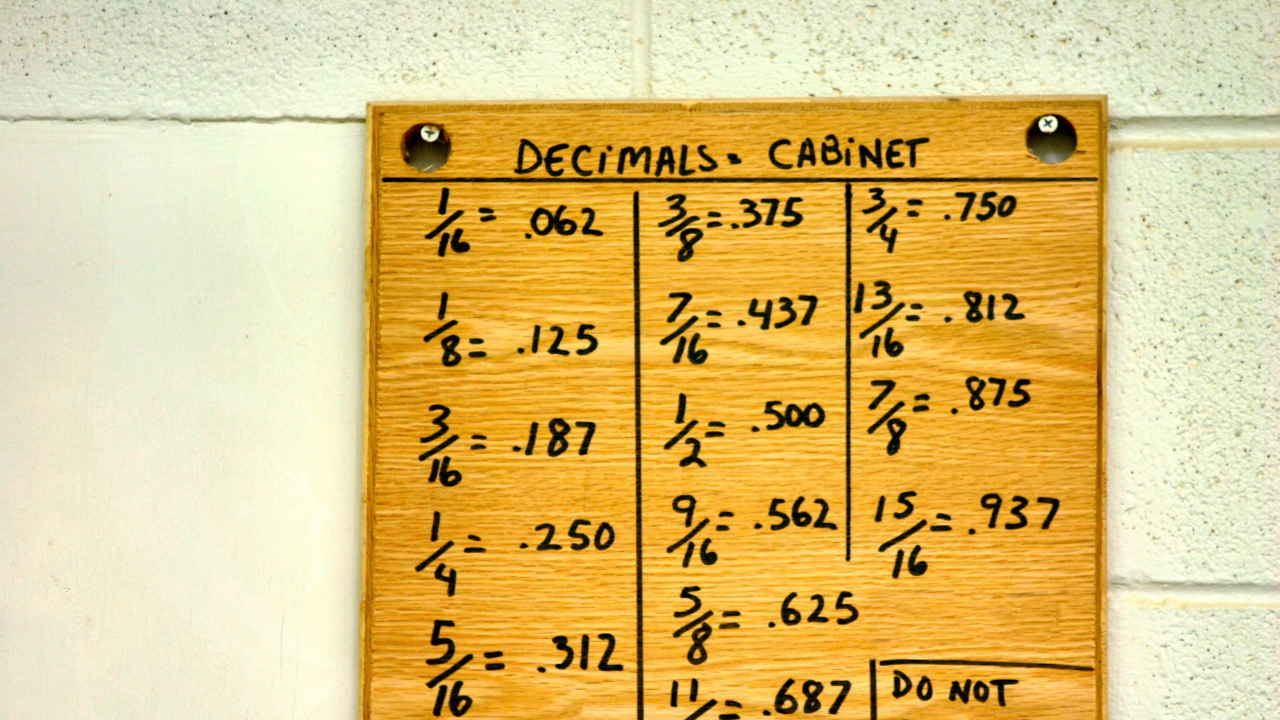 DECIMALS. CABINET
1/16 = .062
1/8 = .125
3/16 = .187
1/4 = .250
5/16 = .312
3/8 = .375
7/16 = .437
1/2 = .500
9/16 = .562
5/8 = .625
11/ = .687
3/4 = .750
13/16 = .812
7/8 = .875
15/16 = .937
DO NOT